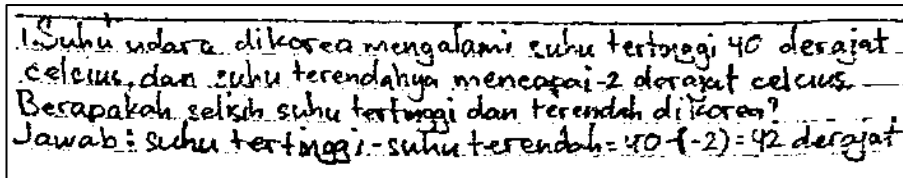 1. Suhu udara dikorea mengalami suhu tertinggi 40 derajat
celcius, dan suhu terendahya mencapai -2 derajat celcius.
Berapakah selisih suhu tertinggi dan terendah dikorea?
Jawab : suhu tertinggi - suhu terendah = 40 - (-2) = 42 derajat